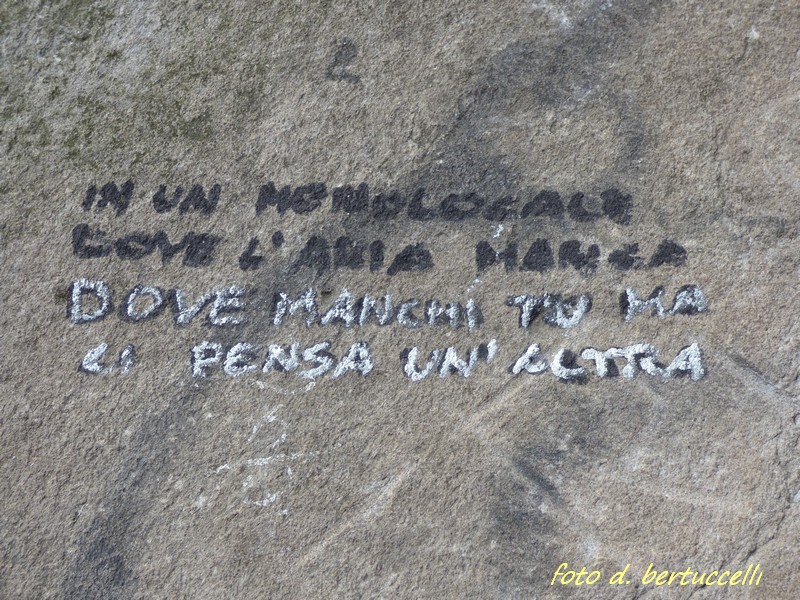 IN UN MONOLOCALE
DOVE L'ARIA MANCA
DOVE MANCHI TU MA
CI PENSA UN'ALTRA
foto d. bertuccelli